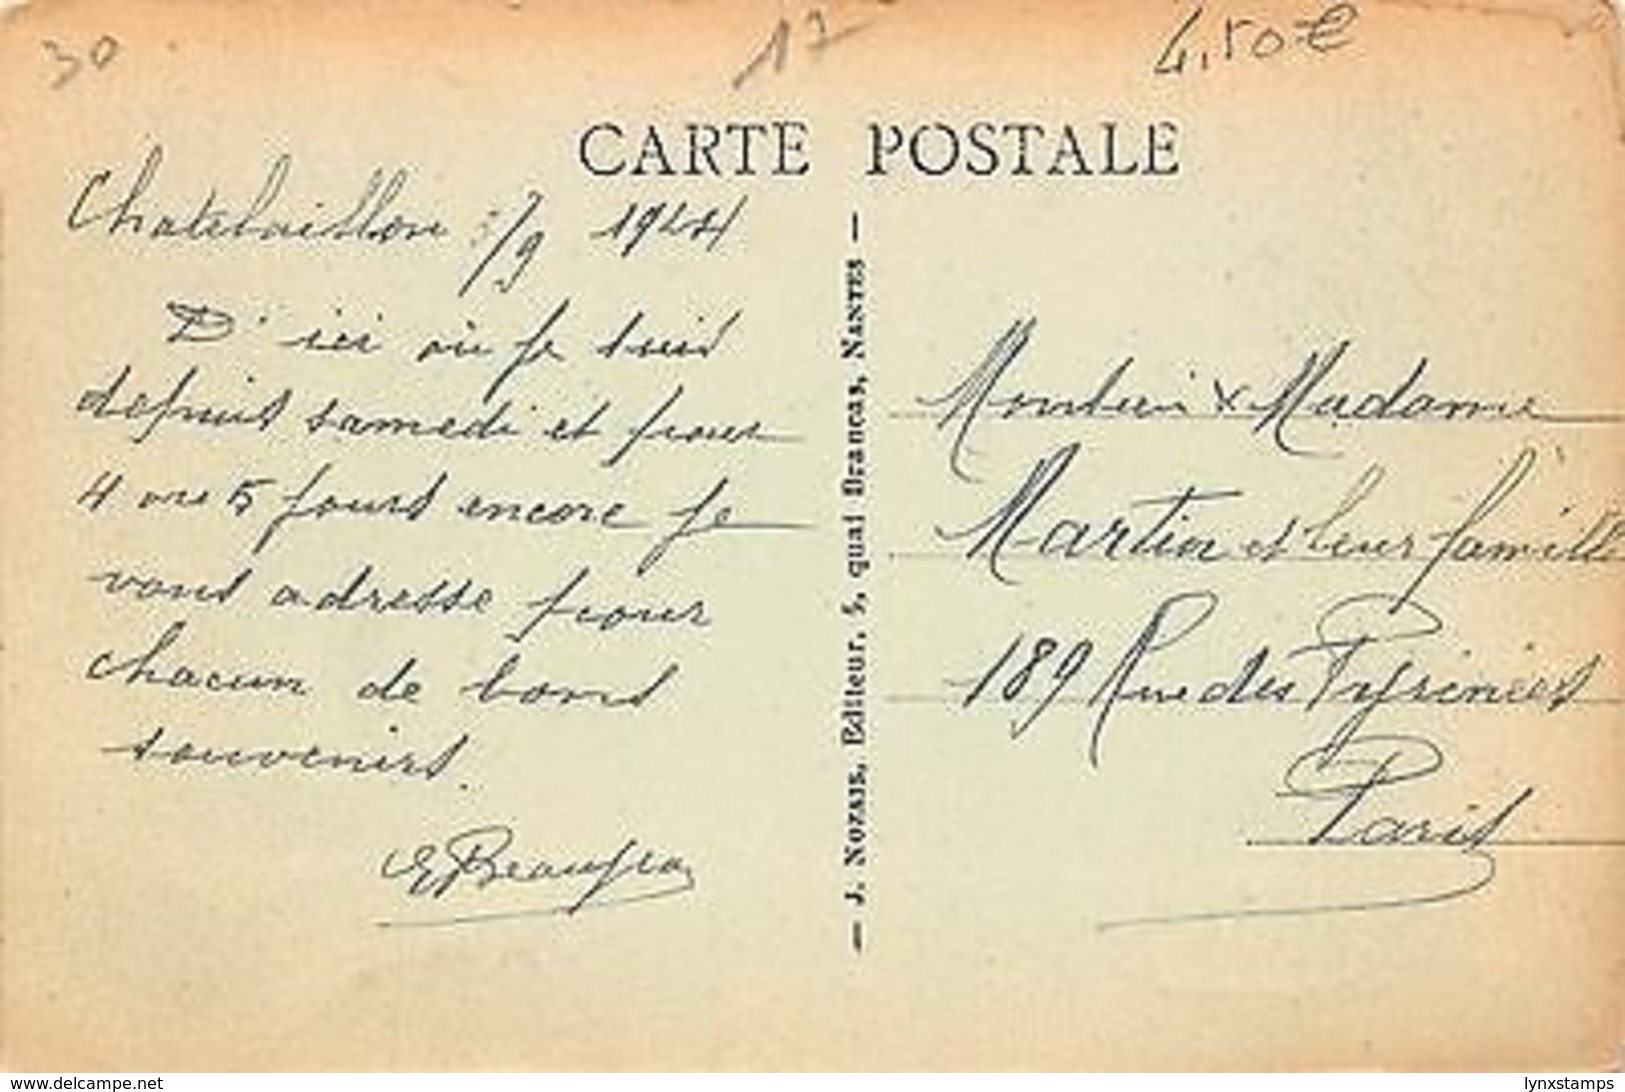 30
17
4,50€
CARTE POSTALE
Chatelaillon /9
D'ici où je suis
depuis samedi et pour
4 ou 5 jours encore je
vous adresse pour
chacun de bons
souvenirs.
J. NOZAIS, Editeur, 5, quai Brancas, NANTES
Monsieur & Madame
Martin et leur famille
189 Rue des Pyrénées
Paris
www.delcampe.net
lynxstamps